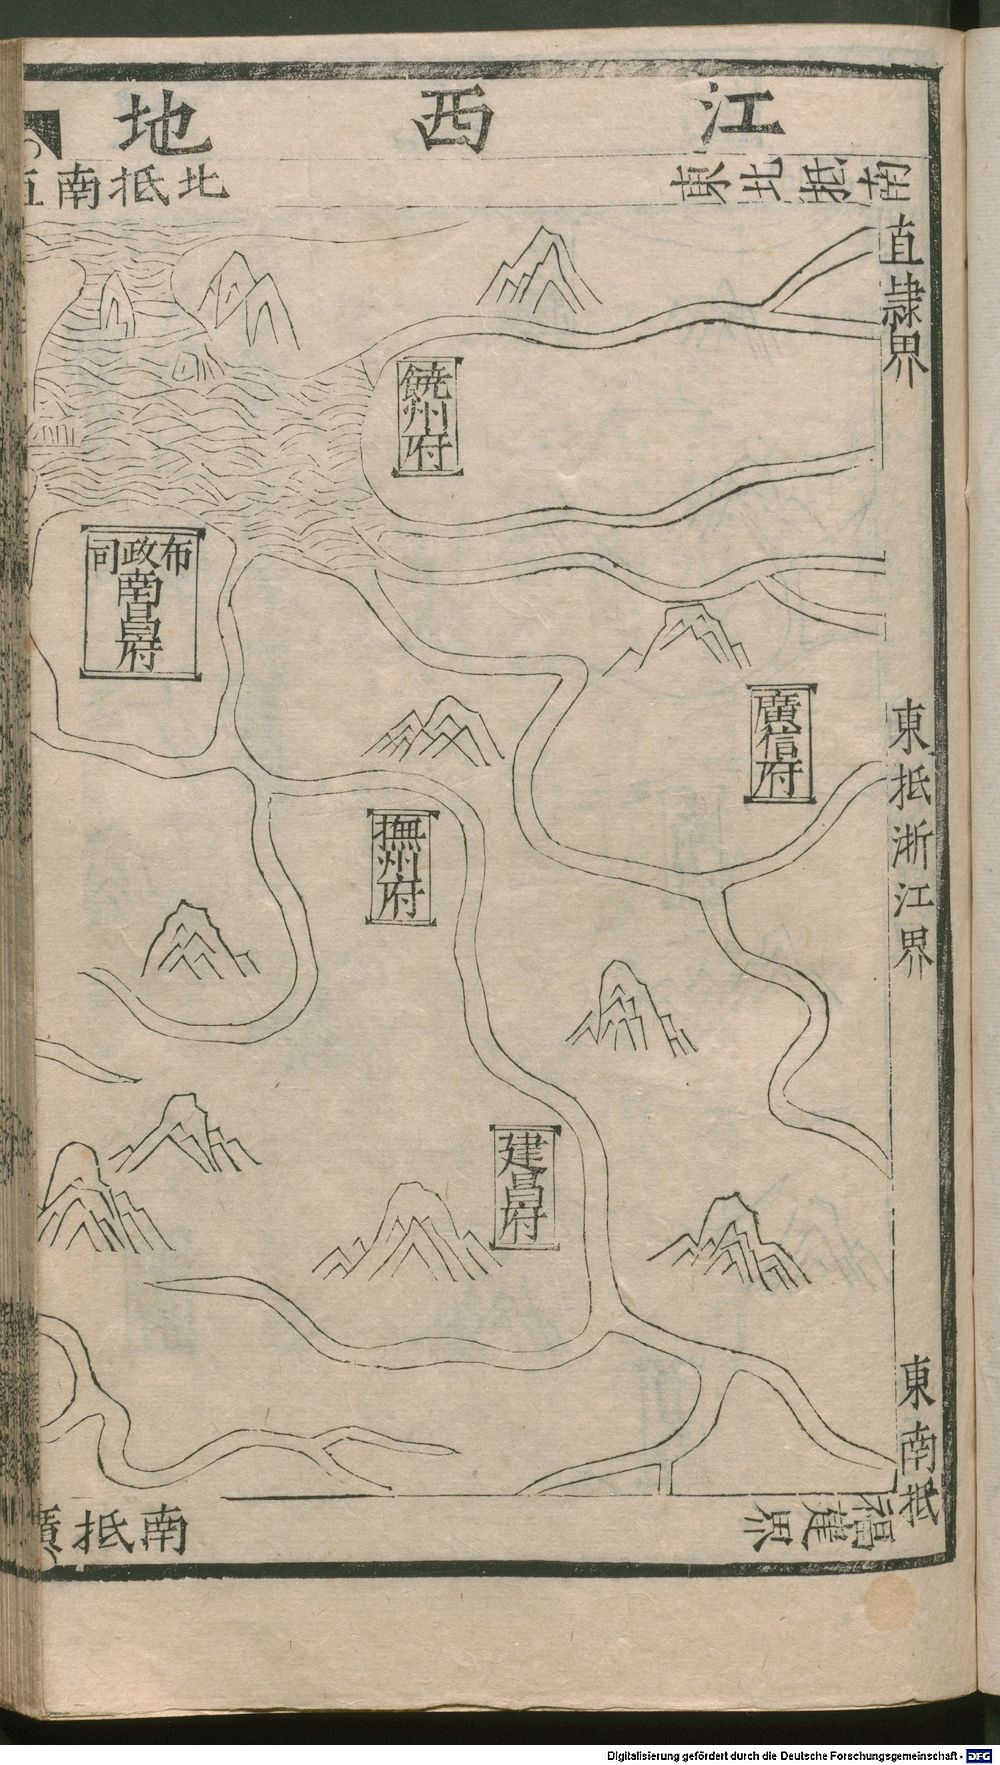 江西地
東北抵南
直隸界
北抵南直
饒州府
布政司
南昌府
廣信府
撫州府
建昌府
東抵浙江界
東南抵
福建界
南抵廣
Digitalisierung gefördert durch die Deutsche Forschungsgemeinschaft - DFG